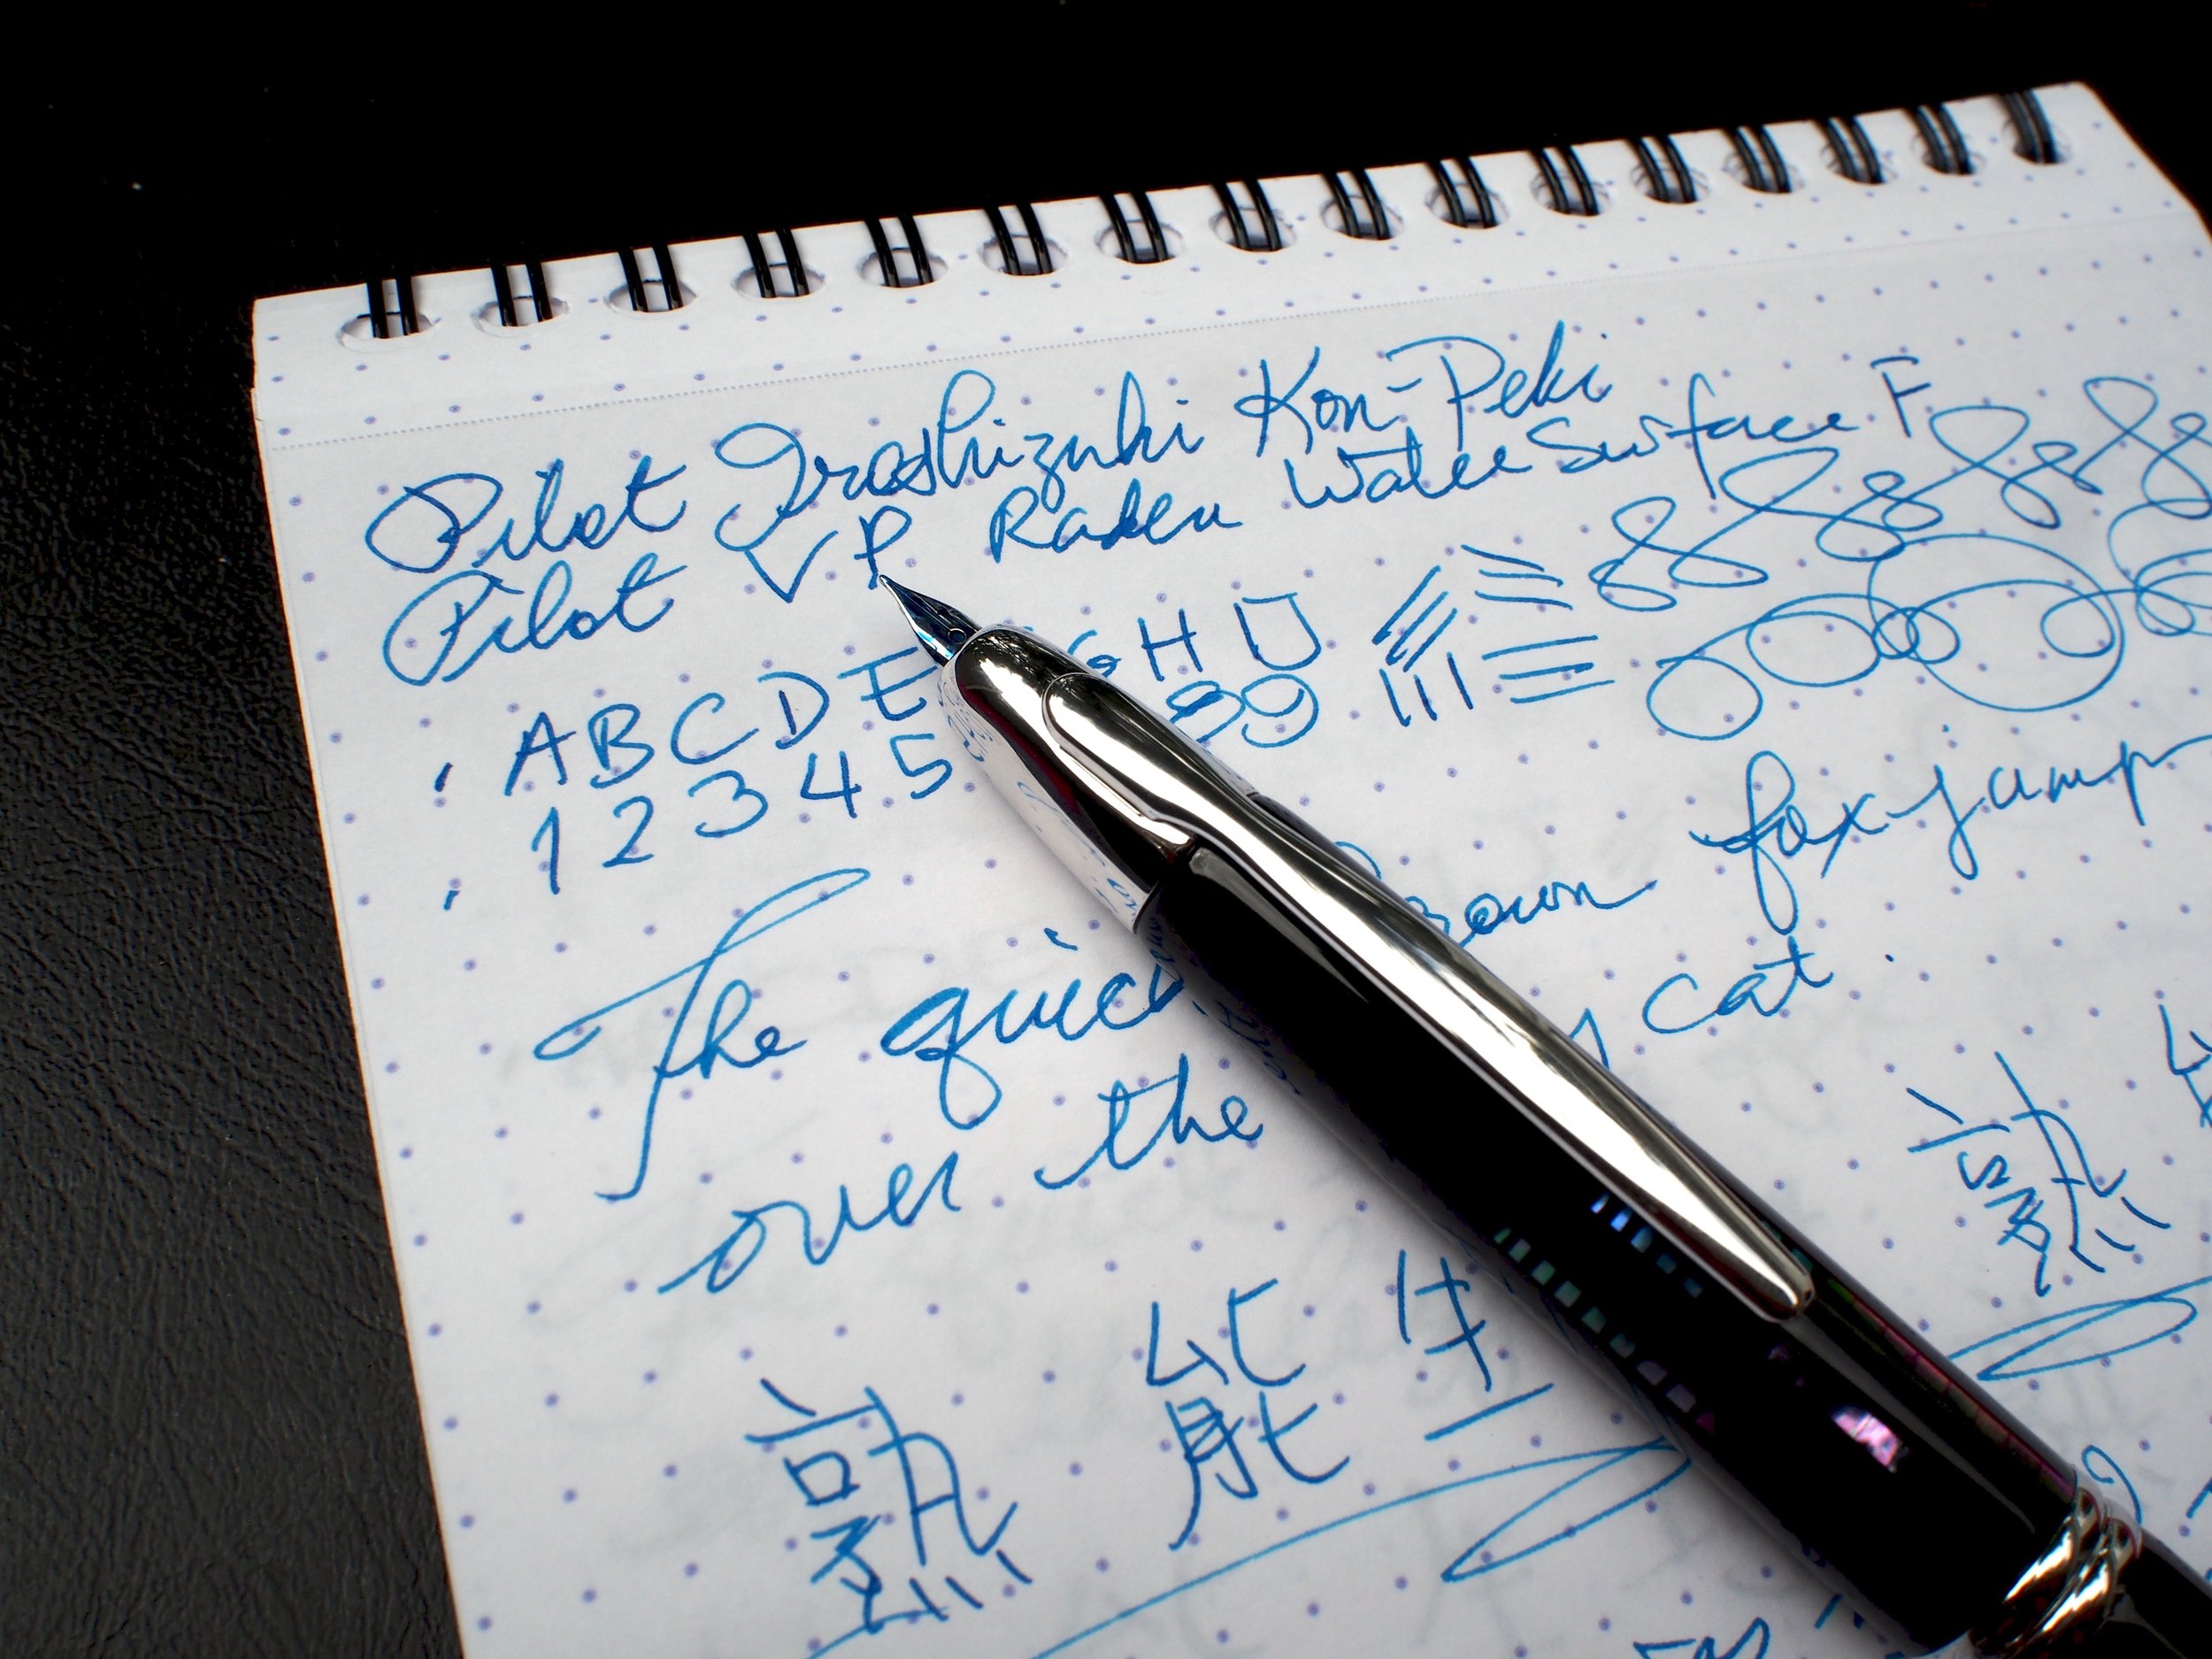 Pilot Iroshizuku Kon-Peki
Pilot VP Raden Water Surface F
A B C D E G H IJ
1 2 3 4 5 8 9
The quick Brown fox jump
over the cat.
熟 能 生
熟